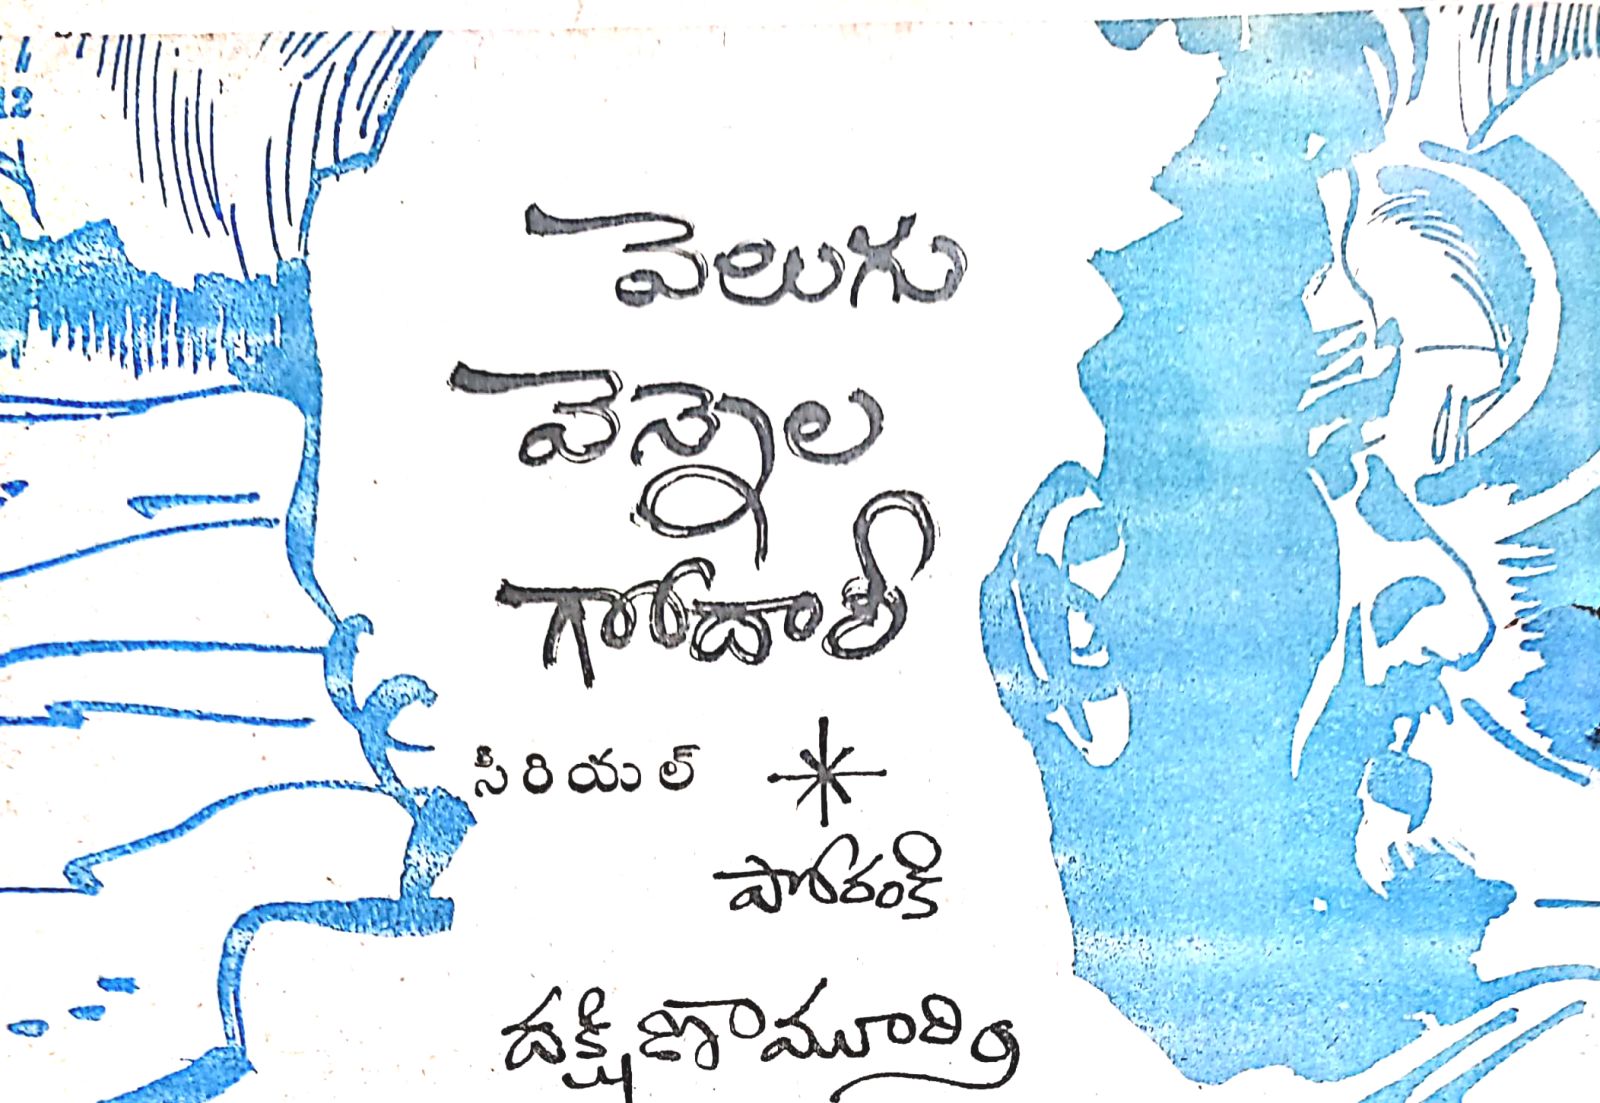 12
వెలుగు
వెన్నెల
గోదారి
సీరియల్
పోరంకి
దక్షిణామూర్తి